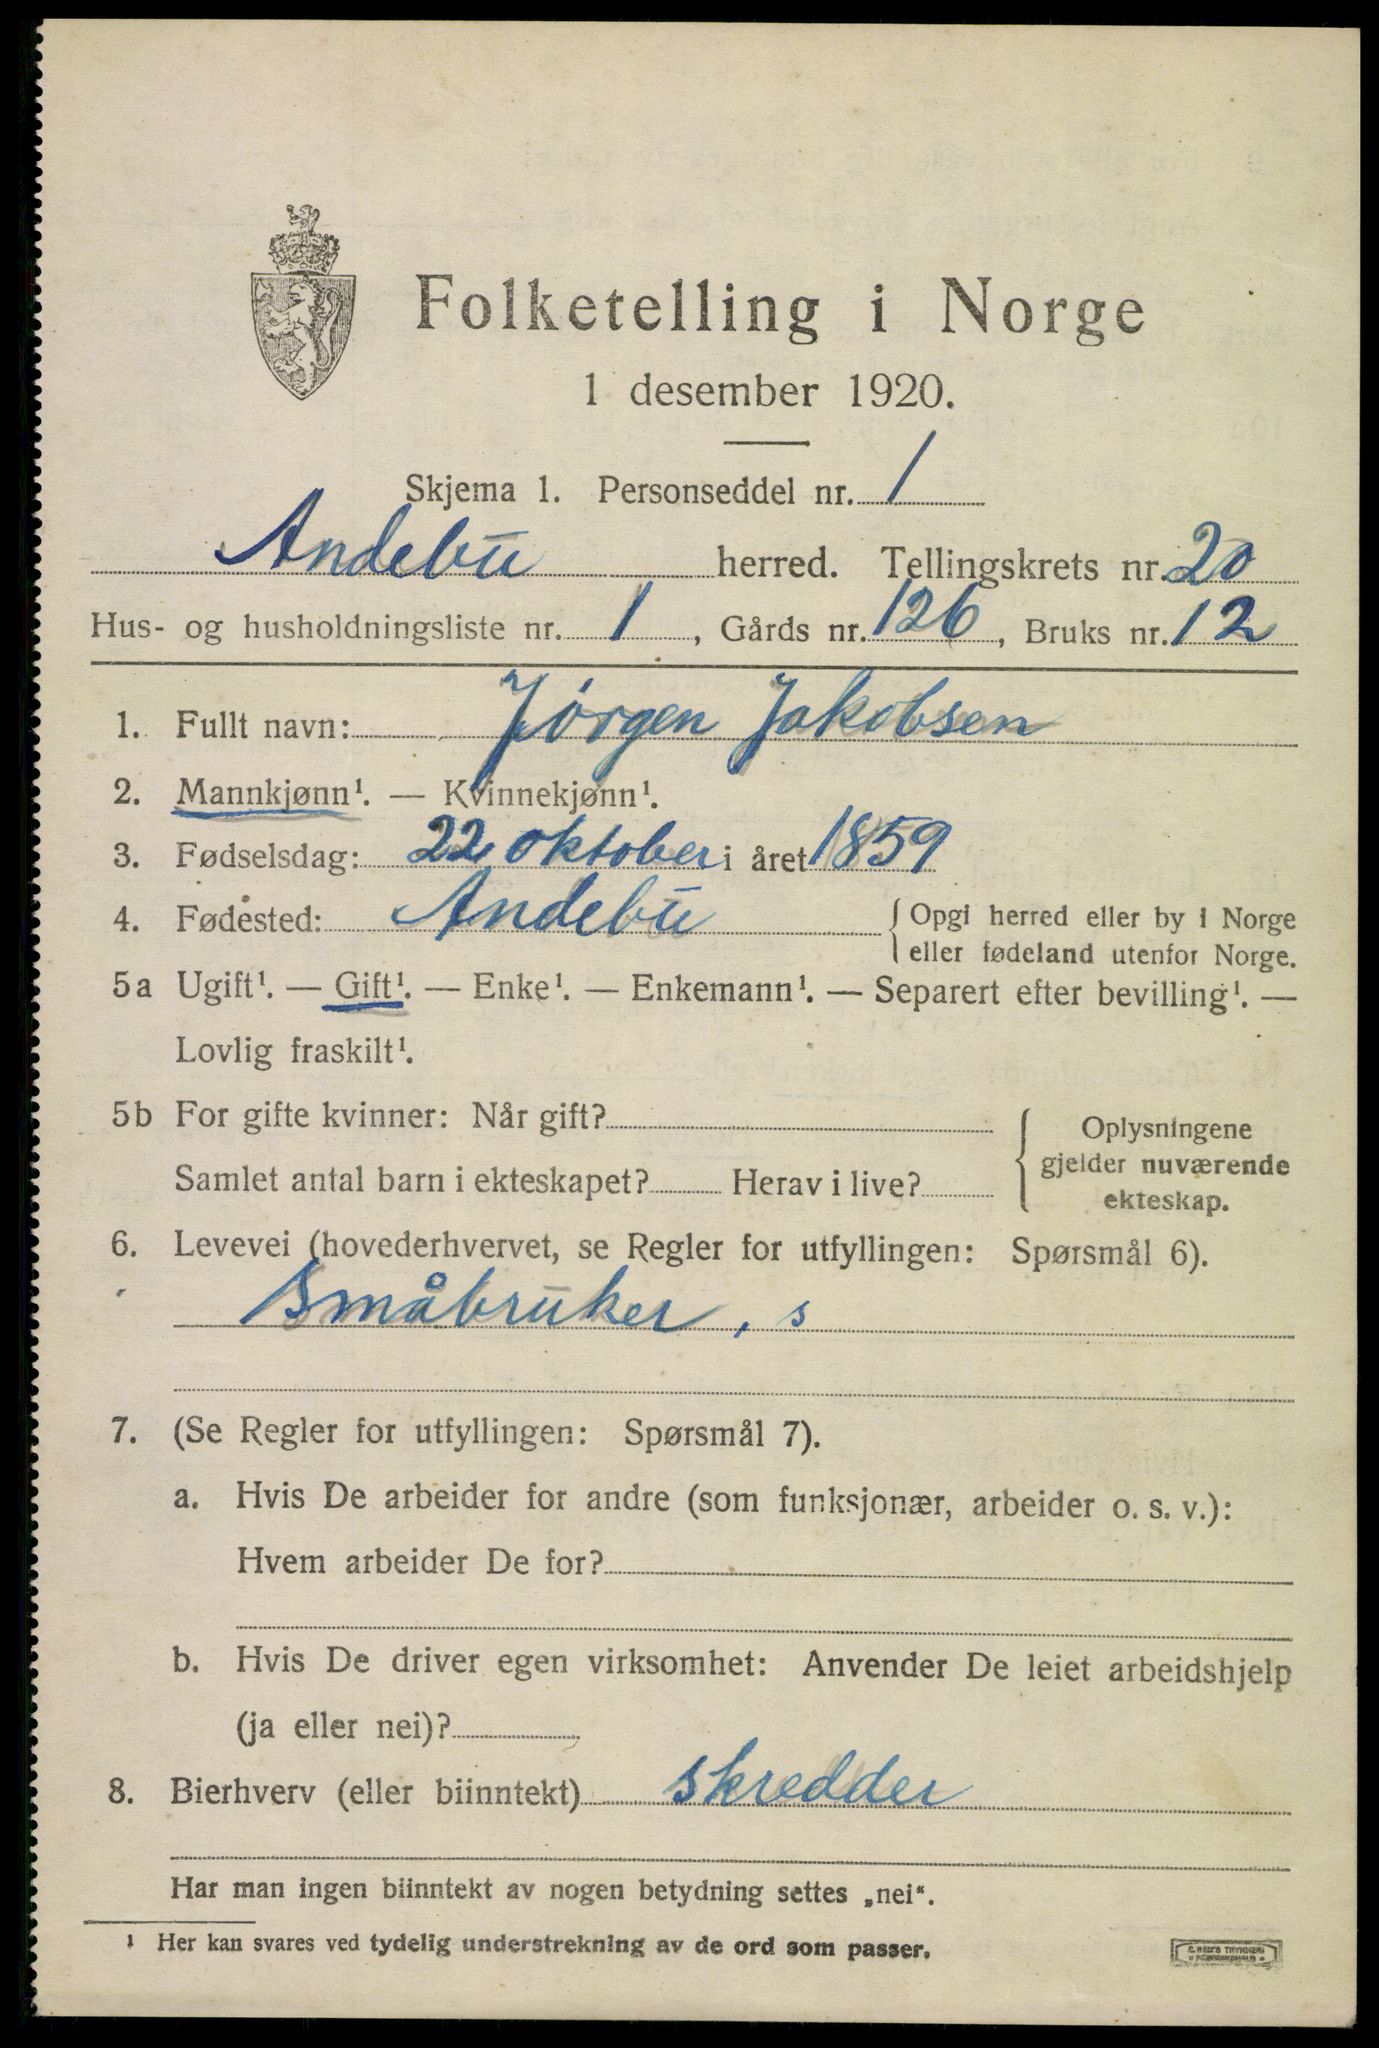 Folketelling i Norge
1 desember 1920.
Skjema 1. Personseddel nr. 1
Andebu herred. Tellingskrets nr. 20
Hus- og husholdningsliste nr. 1, Gårds nr. 126, Bruks nr. 12
1. Fullt navn: Jørgen Jakobsen
2. Mannkjønn¹. — Kvinnekjønn¹.
3. Fødselsdag: 22 oktober i året 1859
4. Fødested: Andebu {Opgi herred eller by i Norge
eller fødeland utenfor Norge.
5a Ugift¹. — Gift¹. — Enke¹. — Enkemann¹. — Separert efter bevilling¹. —
Lovlig fraskilt¹.
5b For gifte kvinner: Når gift?
Samlet antal barn i ekteskapet? Herav i live?
{Oplysningene
gjelder nuværende
ekteskap.
6. Levevei (hovederhvervet, se Regler for utfyllingen: Spørsmål 6).
Småbruker, s
7. (Se Regler for utfyllingen: Spørsmål 7).
a. Hvis De arbeider for andre (som funksjonær, arbeider o. s. v.):
Hvem arbeider De for?
b. Hvis De driver egen virksomhet: Anvender De leiet arbeidshjelp
(ja eller nei)?
8. Bierhverv (eller biinntekt) skredder
Har man ingen biinntekt av nogen betydning settes „nei“.
¹ Her kan svares ved tydelig understrekning av de ord som passer.